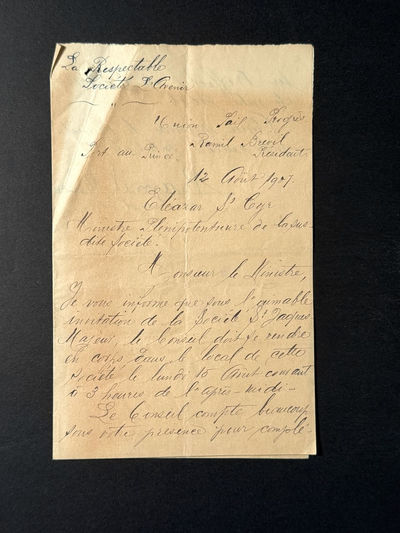 La Respectable
Société L'Avenir
Union Paix Progrès
Port au Prince
12 Août 19
Eléazar St Cyr
Ministre Plénipotentiaire de la sus-
dite Société.
Monsieur le Ministre,
Je vous informe que sous l'aimable
invitation de la Société St Jacques
Majeur, le Conseil doit se rendre
en corps dans le local de cette
Société le lundi 15 Août courant
à 3 heures de l'après-midi-
Le Conseil compte beaucoup
sous votre présence pour complé-